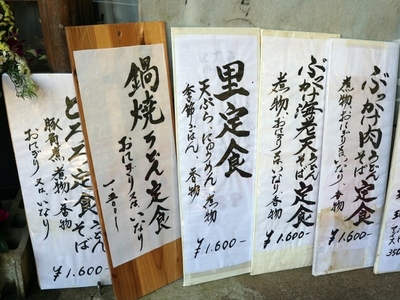 ぶっかけ肉うどんそば定食
煮物、おにぎり又はいなり、香物
¥1.600-
ぶっかけ海老天うどんそば定食
煮物、おにぎり又はいなり、香物
¥1.600-
里定食
天ぷら、にゅうめん、煮物
季節ごはん、香物
¥1.600-
鍋焼うどん定食
おにぎり又はいなり
とろろ定食うどんそば
豚角煮、煮物、香物
おにぎり又はいなり
¥1.600-